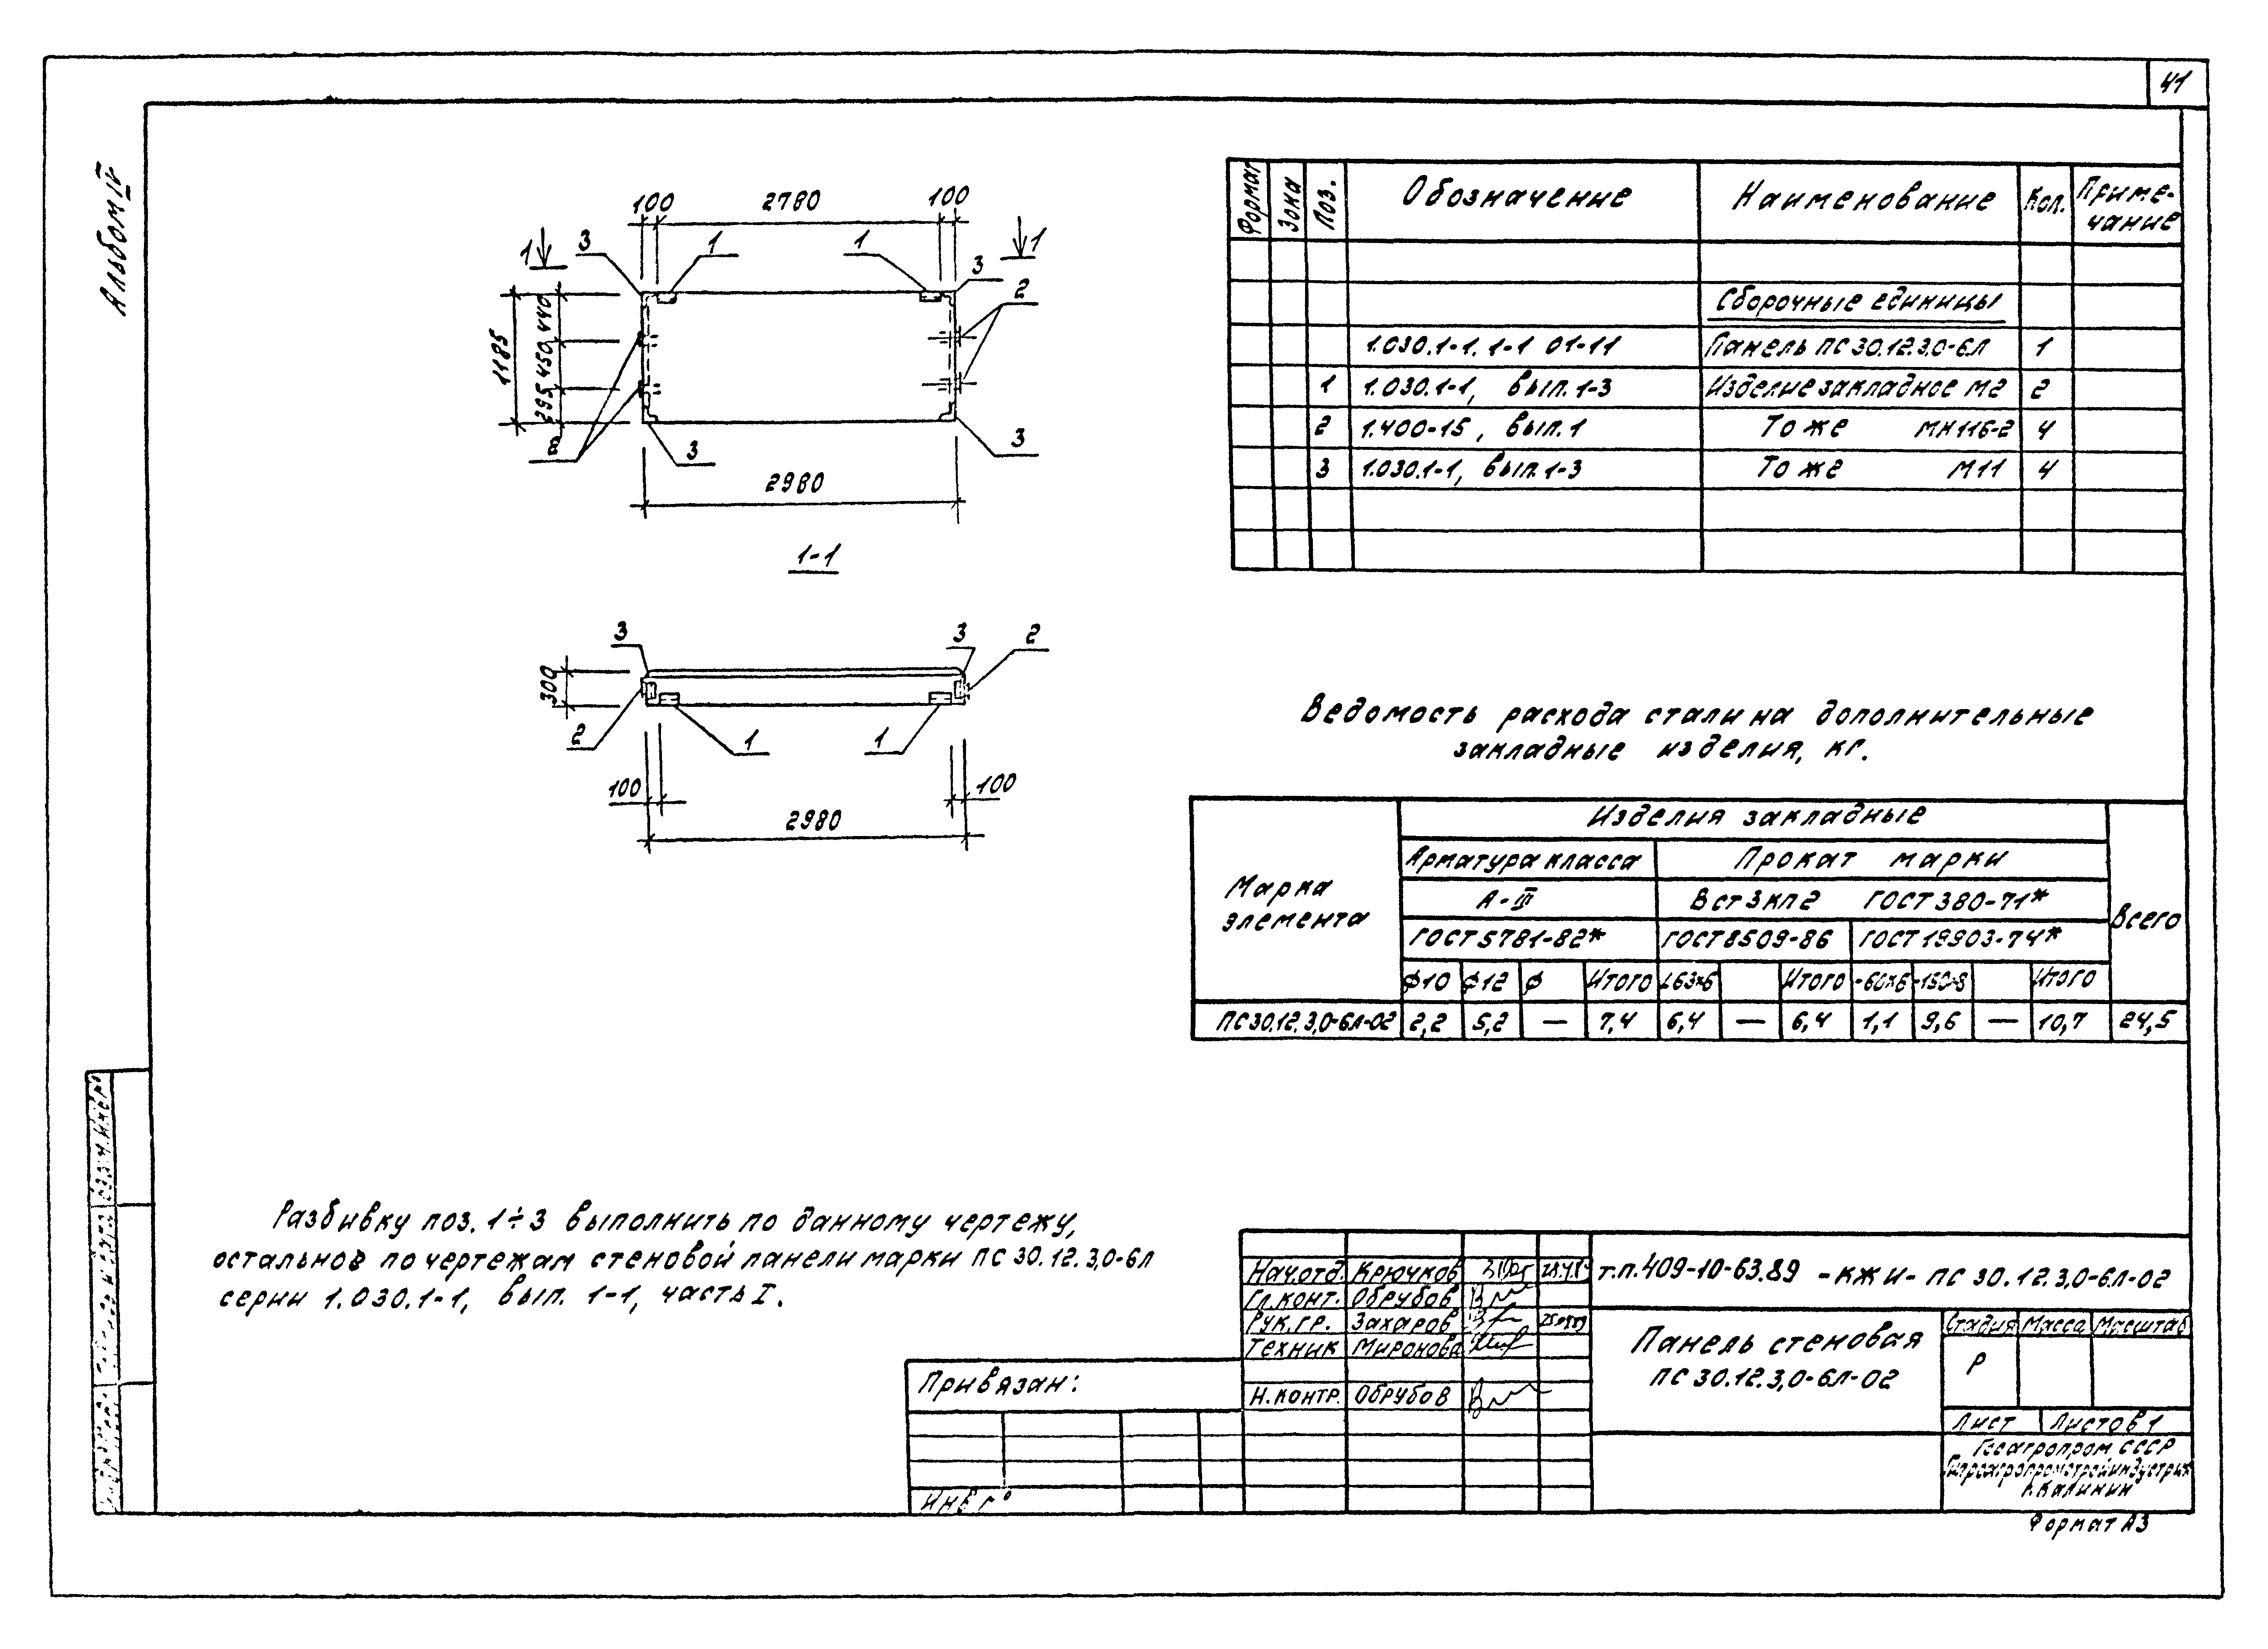 41
Альбом IV
100 2780 100
1 3 1 1 3 1
2
1185
295 450 440
2 3 3
2980
1-1
3 3 2
300
2 1 1
100 100
2980
Формат Зона Поз. Обозначение Наименование Кол. Приме-
чание
Сборочные единицы
1.030.1-1. 1-1 01-11 Панель ПС 30.12.3,0-6Л 1
1 1.030.1-1, вып. 1-3 Изделие закладное М2 2
2 1.400-15, вып. 1 То же МН116-2 4
3 1.030.1-1, вып. 1-3 То же М11 4
Ведомость расхода стали на дополнительные
закладные изделия, кг.
Марка
элемента
Изделия закладные
Всего
Арматура класса Прокат марки
А-III Вст3кп2 ГОСТ 380-71*
ГОСТ 5781-82* ГОСТ 8509-86 ГОСТ 19903-74*
ф10 ф12 ф Итого L63×6 Итого -60×6 -150×8 Итого
ПС30.12.3,0-6Л-02 2,2 5,2 — 7,4 6,4 — 6,4 1,1 9,6 — 10,7 24,5
Разбивку поз. 1÷3 выполнить по данному чертежу,
остальное по чертежам стеновой панели марки ПС 30.12.3,0-6Л
серии 1.030.1-1, вып. 1-1, часть I.
Нач.отд. Крючков
Гл.конт. Обрубов
Рук.гр. Захаров
Техник Миронова
Н.контр. Обрубов
т.п.409-10-63.89 -КЖИ- ПС 30.12.3,0-6Л-02
Панель стеновая
ПС 30.12.3,0-6Л-02
Стадия Масса Масштаб
Р
Лист Листов 1
Госагропром СССР
Гипроагропромстройиндустрия
г. Калинин
Привязан:
Инв №
Формат А3